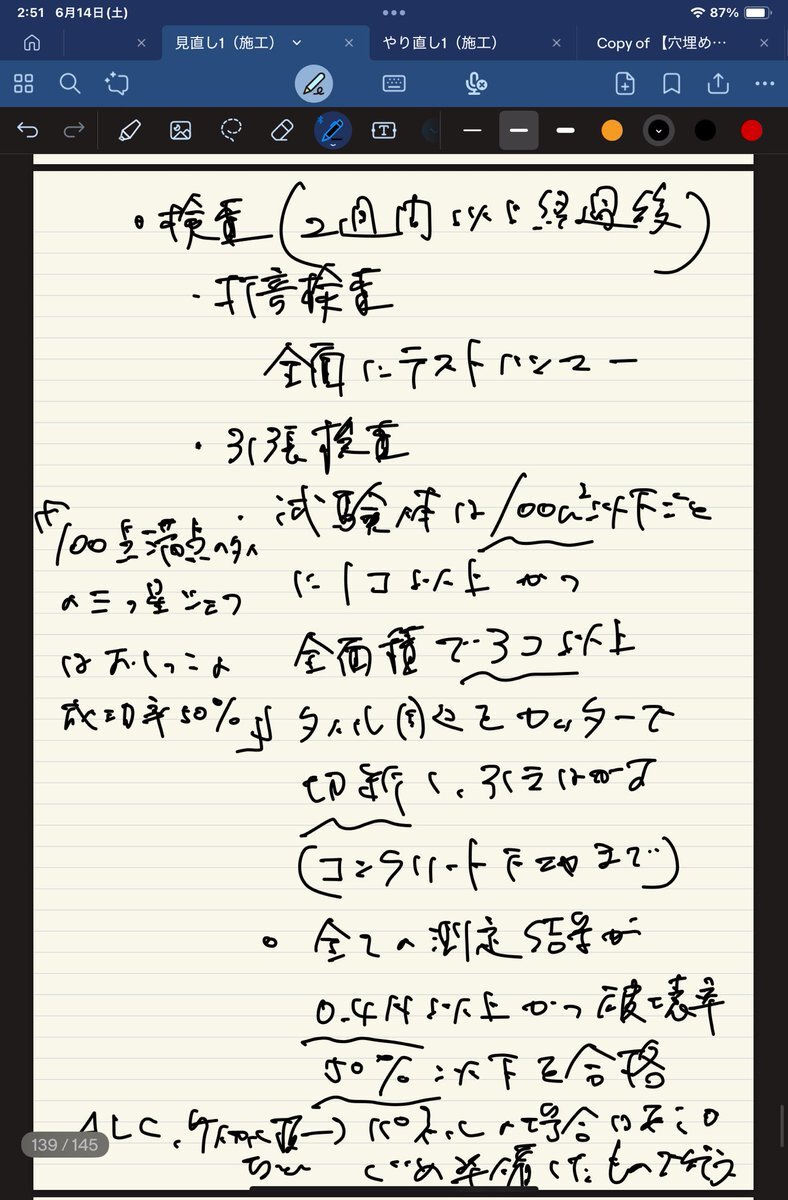 2:51 6月14日(土)
87%
見直し1（施工）
やり直し1（施工）
Copy of 【穴埋め…
・検査(2週間以上経過後)
・打音検査
全面にテストハンマー
・引張検査
試験体は100m²以下ごと
に1コ以上かつ
全面積で3コ以上
100点満点の
の三つ星
は
成功率50%
タイル周辺をカッターで
切断し、引きはがす
(コンクリート下地まで)
全ての測定結果が
0.4N以上かつ破壊率
50%以下を合格
ALC、パネルの場合は
準備したもので行う
139 / 145